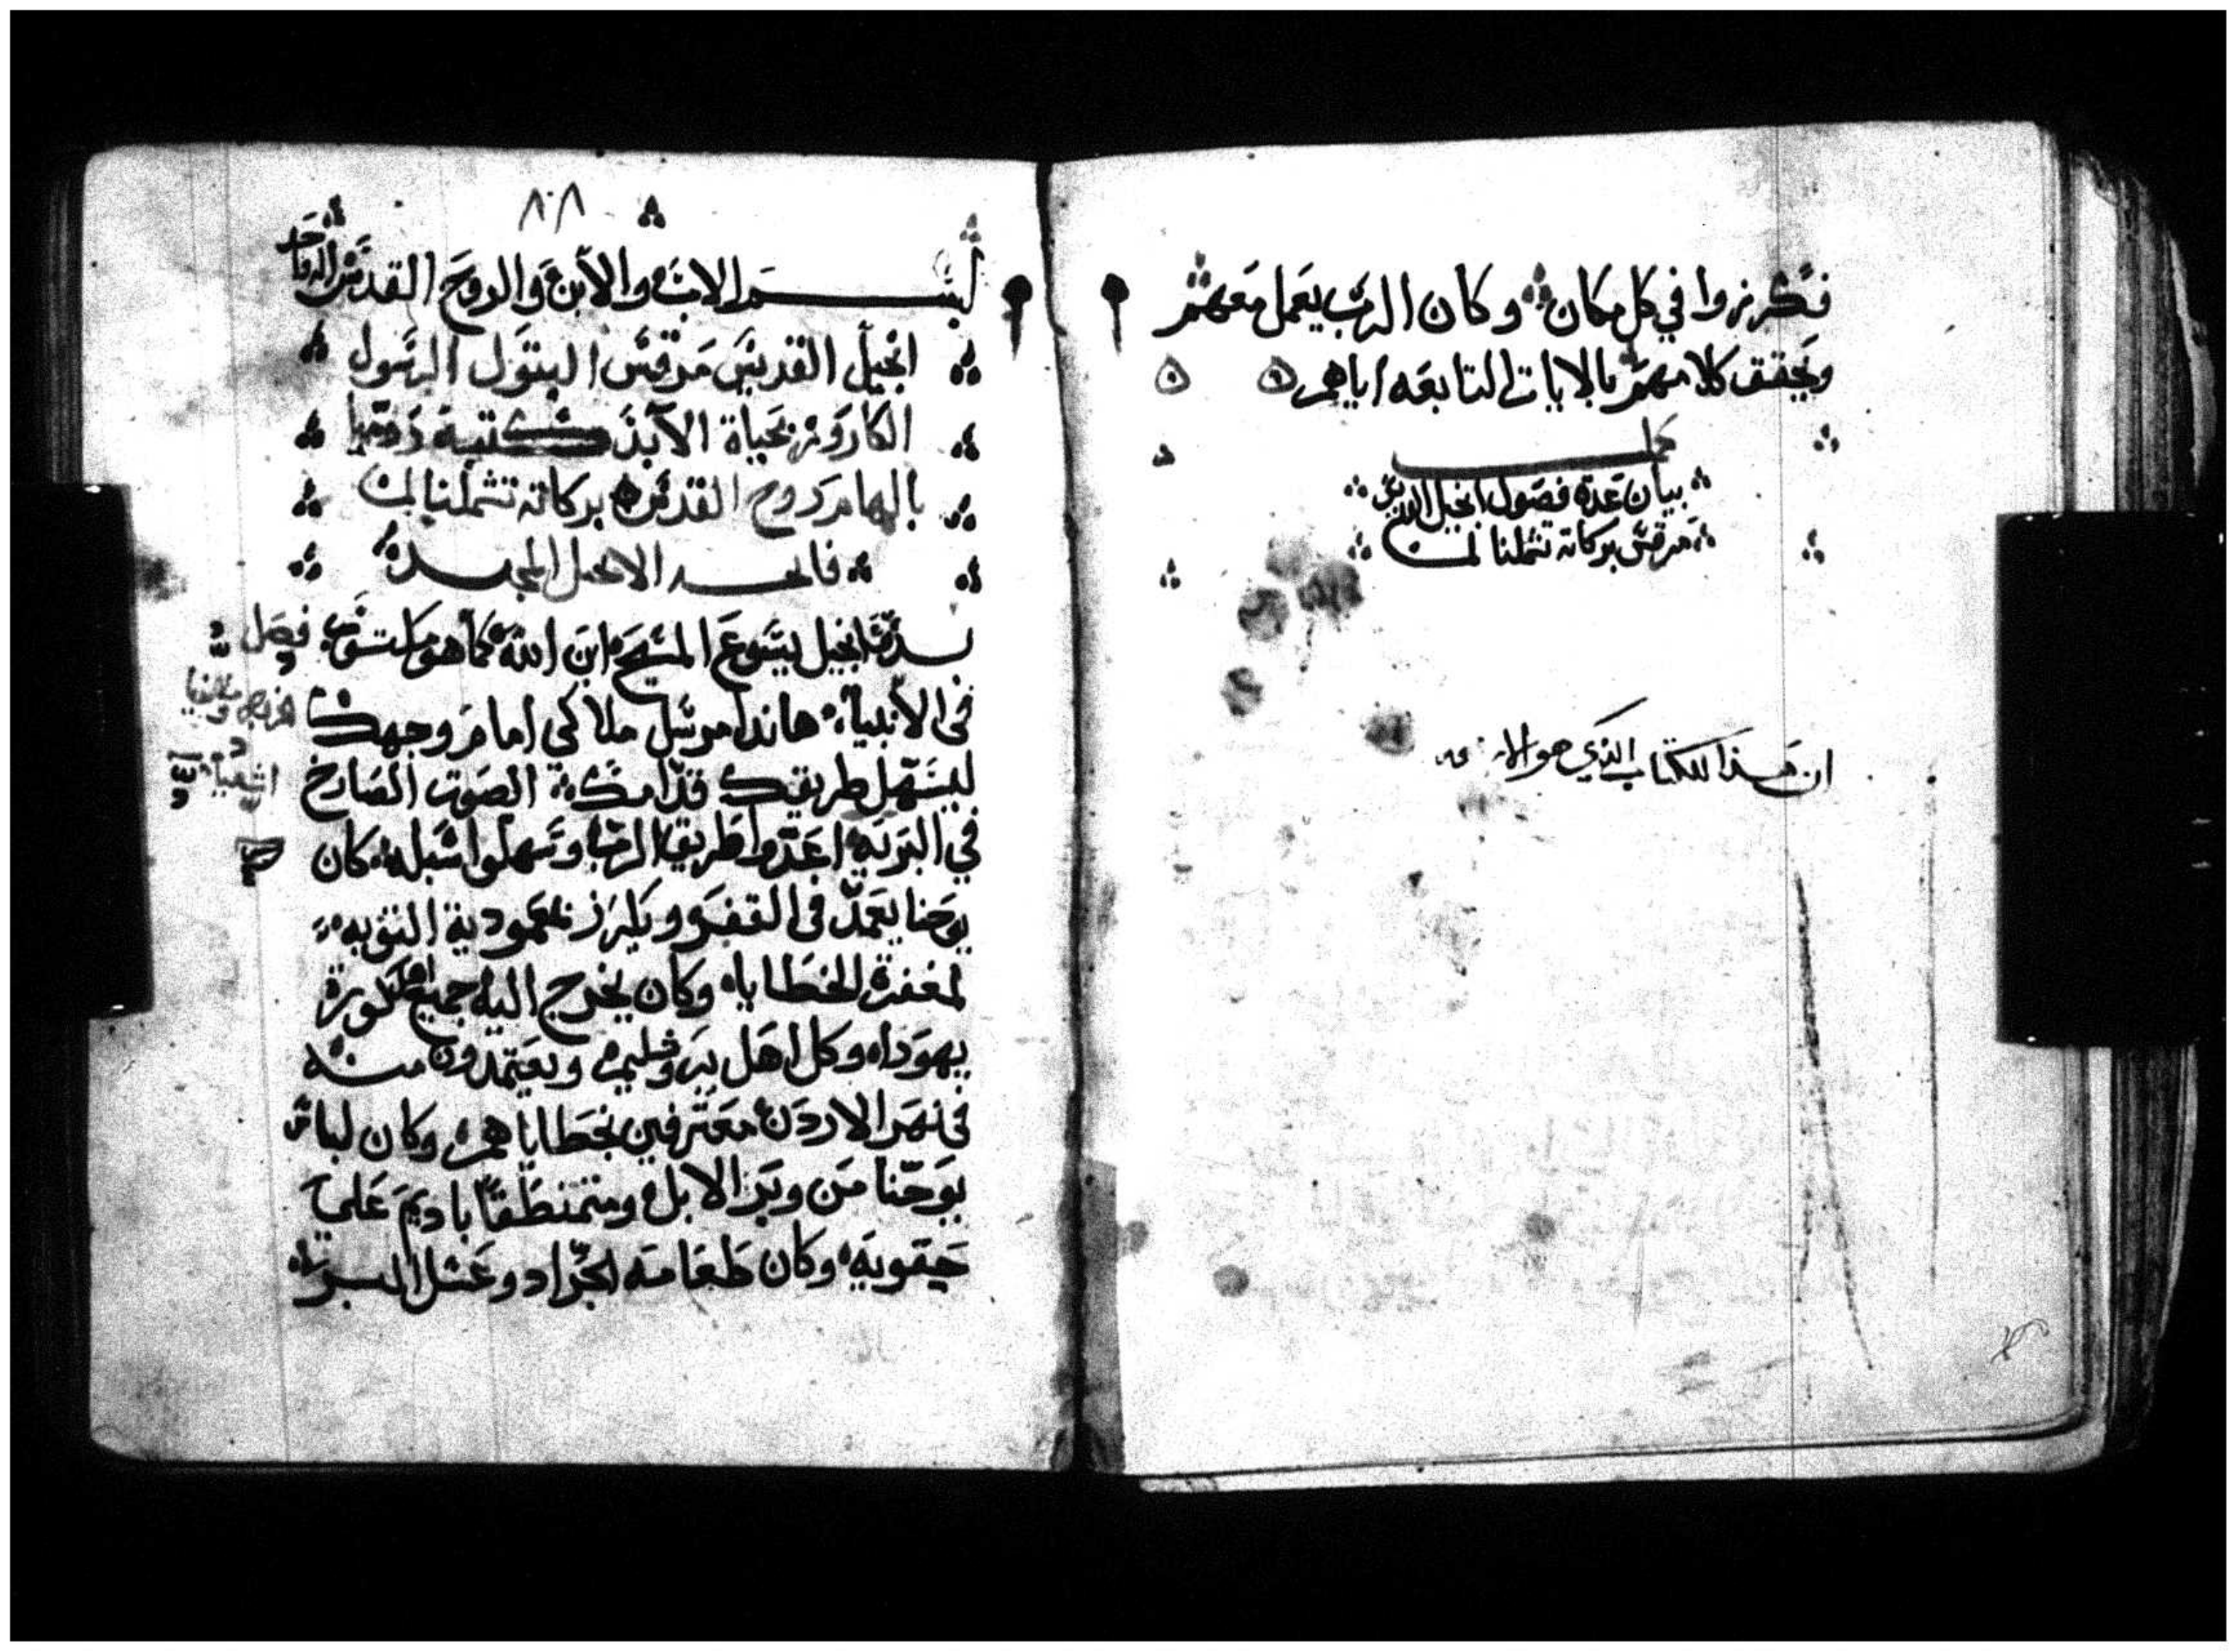 فكرزوا في كل مكان وكان الرب يعمل معهم
ويحقق كلامهم بالايات التابعه اياهم
كمل
بيان عدة فصول انجيل القديس
مرقس بركاته تشملنا امين
ان هذا الكتاب الذي هو الا
٨٠٨
بسم الاب والابن والروح القدس اله واحد
انجيل القديس مرقس البتول الرسول
الكاروز بحياة الابد كتبه
بالهام روح القدس بركاته تشملنا امين
فاتحة الانجيل المجيد
بدء انجيل يسوع المسيح ابن الله كما هو مكتوب
فصل
في الانبياء هانذا مرسل ملاكي امام وجهك
ليسهل طريقك قدامك الصوت الصارخ
اشعياء
في البريه اعدوا طريق الرب وسهلوا سبله كان
يوحنا يعمد في القفر ويكرز بمعمودية التوبه
لمغفرة الخطايا وكان يخرج اليه جميع اهل كورة
يهودا وكل اهل يروشليم ويعتمدون منه
في نهر الاردن معترفين بخطاياهم وكان لباس
يوحنا من وبر الابل ومتمنطقا باديم علي
حقويه وكان طعامه الجراد وعسل البر